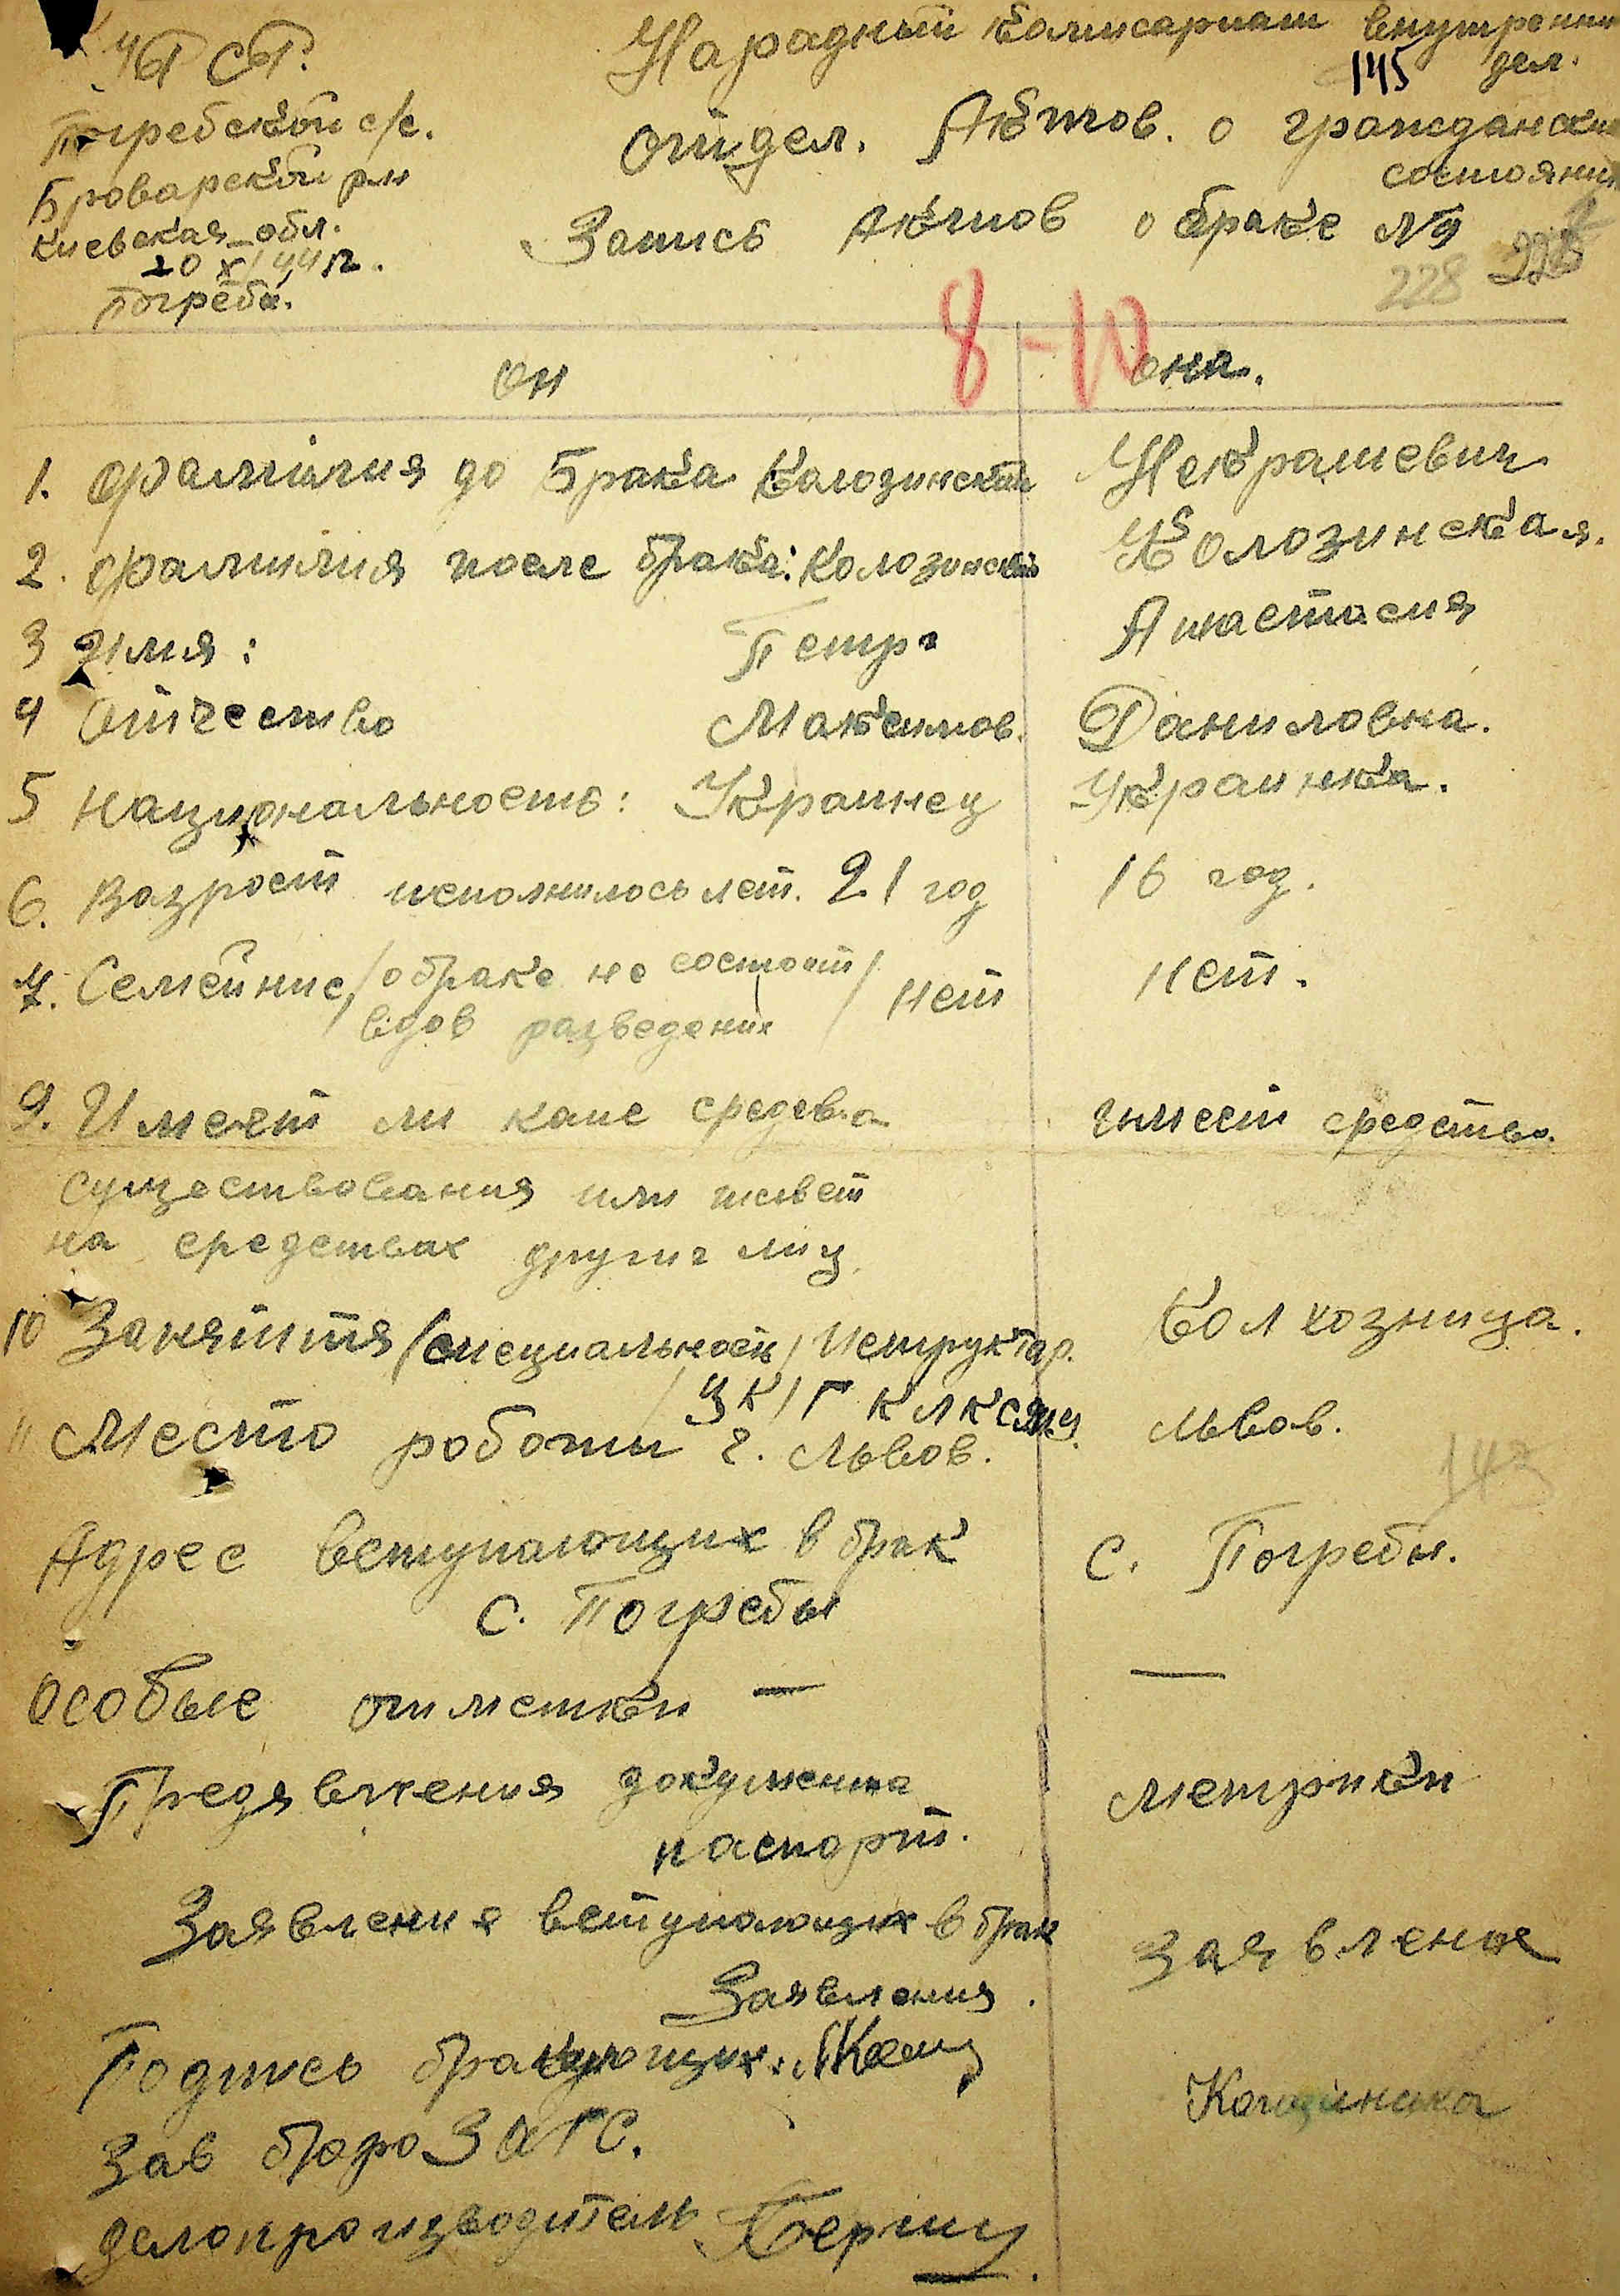 Народный комисариат внутренни
дел.
145
Погребской с/с.
Броварской р-н
Киевская обл.
20 X/44 г.
Погреба.
отдел. Актов. о гражданских
состояния
Запись Актов о браке № 9
228
8-10
он
она.
1. Фамилия до Брака Колозинский Некрашевич
2. Фамилия после брака: Колозинский Колозинская.
3 Имя: Петр Анастасия
4 Отчество Максимов. Даниловна.
5 национальность: Украинец Украинка.
6. Возрост исполнилось лет. 21 год 16 год.
7. Семейние /о браке не состоит/ нет нет.
вдов разведении
9. Имеет ли какие средсва имеет средства.
существования или живет
на средствах других лиц
10 Заняття /специальность/ Иструктор. Колхозница.
ЛКСМУ
11 Место роботи г. Львов. Львов.
143
Адрес вступающих в брак с. Погребы.
с. Погребы
Особые отметки — —
Предявления документа метрики
паспорт.
Заявления вступающих в брак Заявления
Заявления.
Подпись бракующих.
Зав бюро ЗАГС.
делопроизводитель